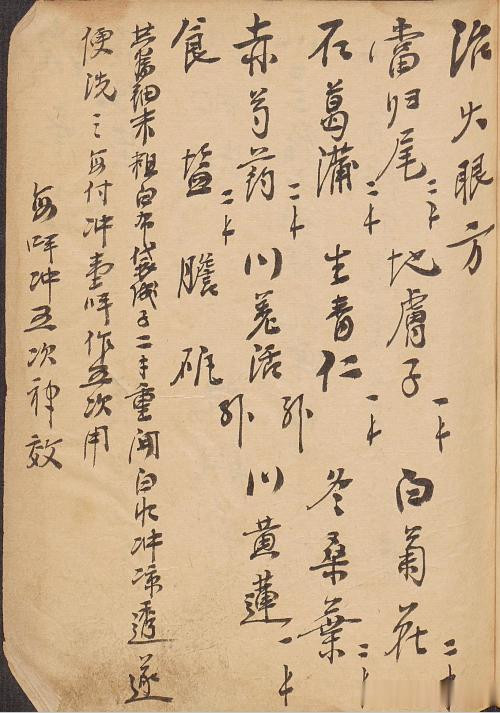 治火眼方
當归尾 二卜 地膚子 一卜 白菊花 二卜
石菖蒲 二卜 生杏仁 一卜 冬桑葉 二卜
赤芍药 二卜 川羌活 川黄莲 一卜
食塩 膽矾
共為細末粗白布袋 二 重 開白水冲凉透逐
便洗之每付冲壹 作五次用
每 冲五次神效